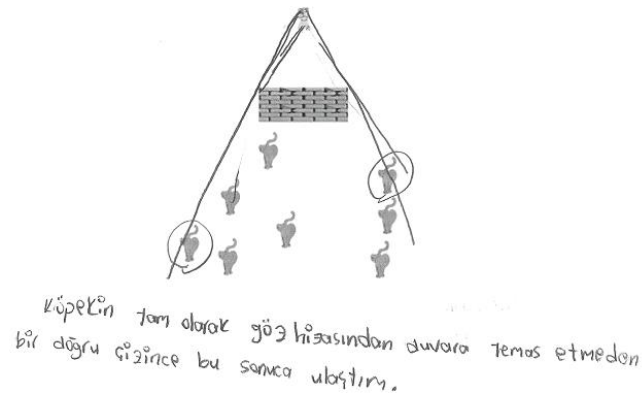 Köpekin tam olarak göz hizasından duvara temas etmeden
bir doğru çizince bu sonuca ulaştım.